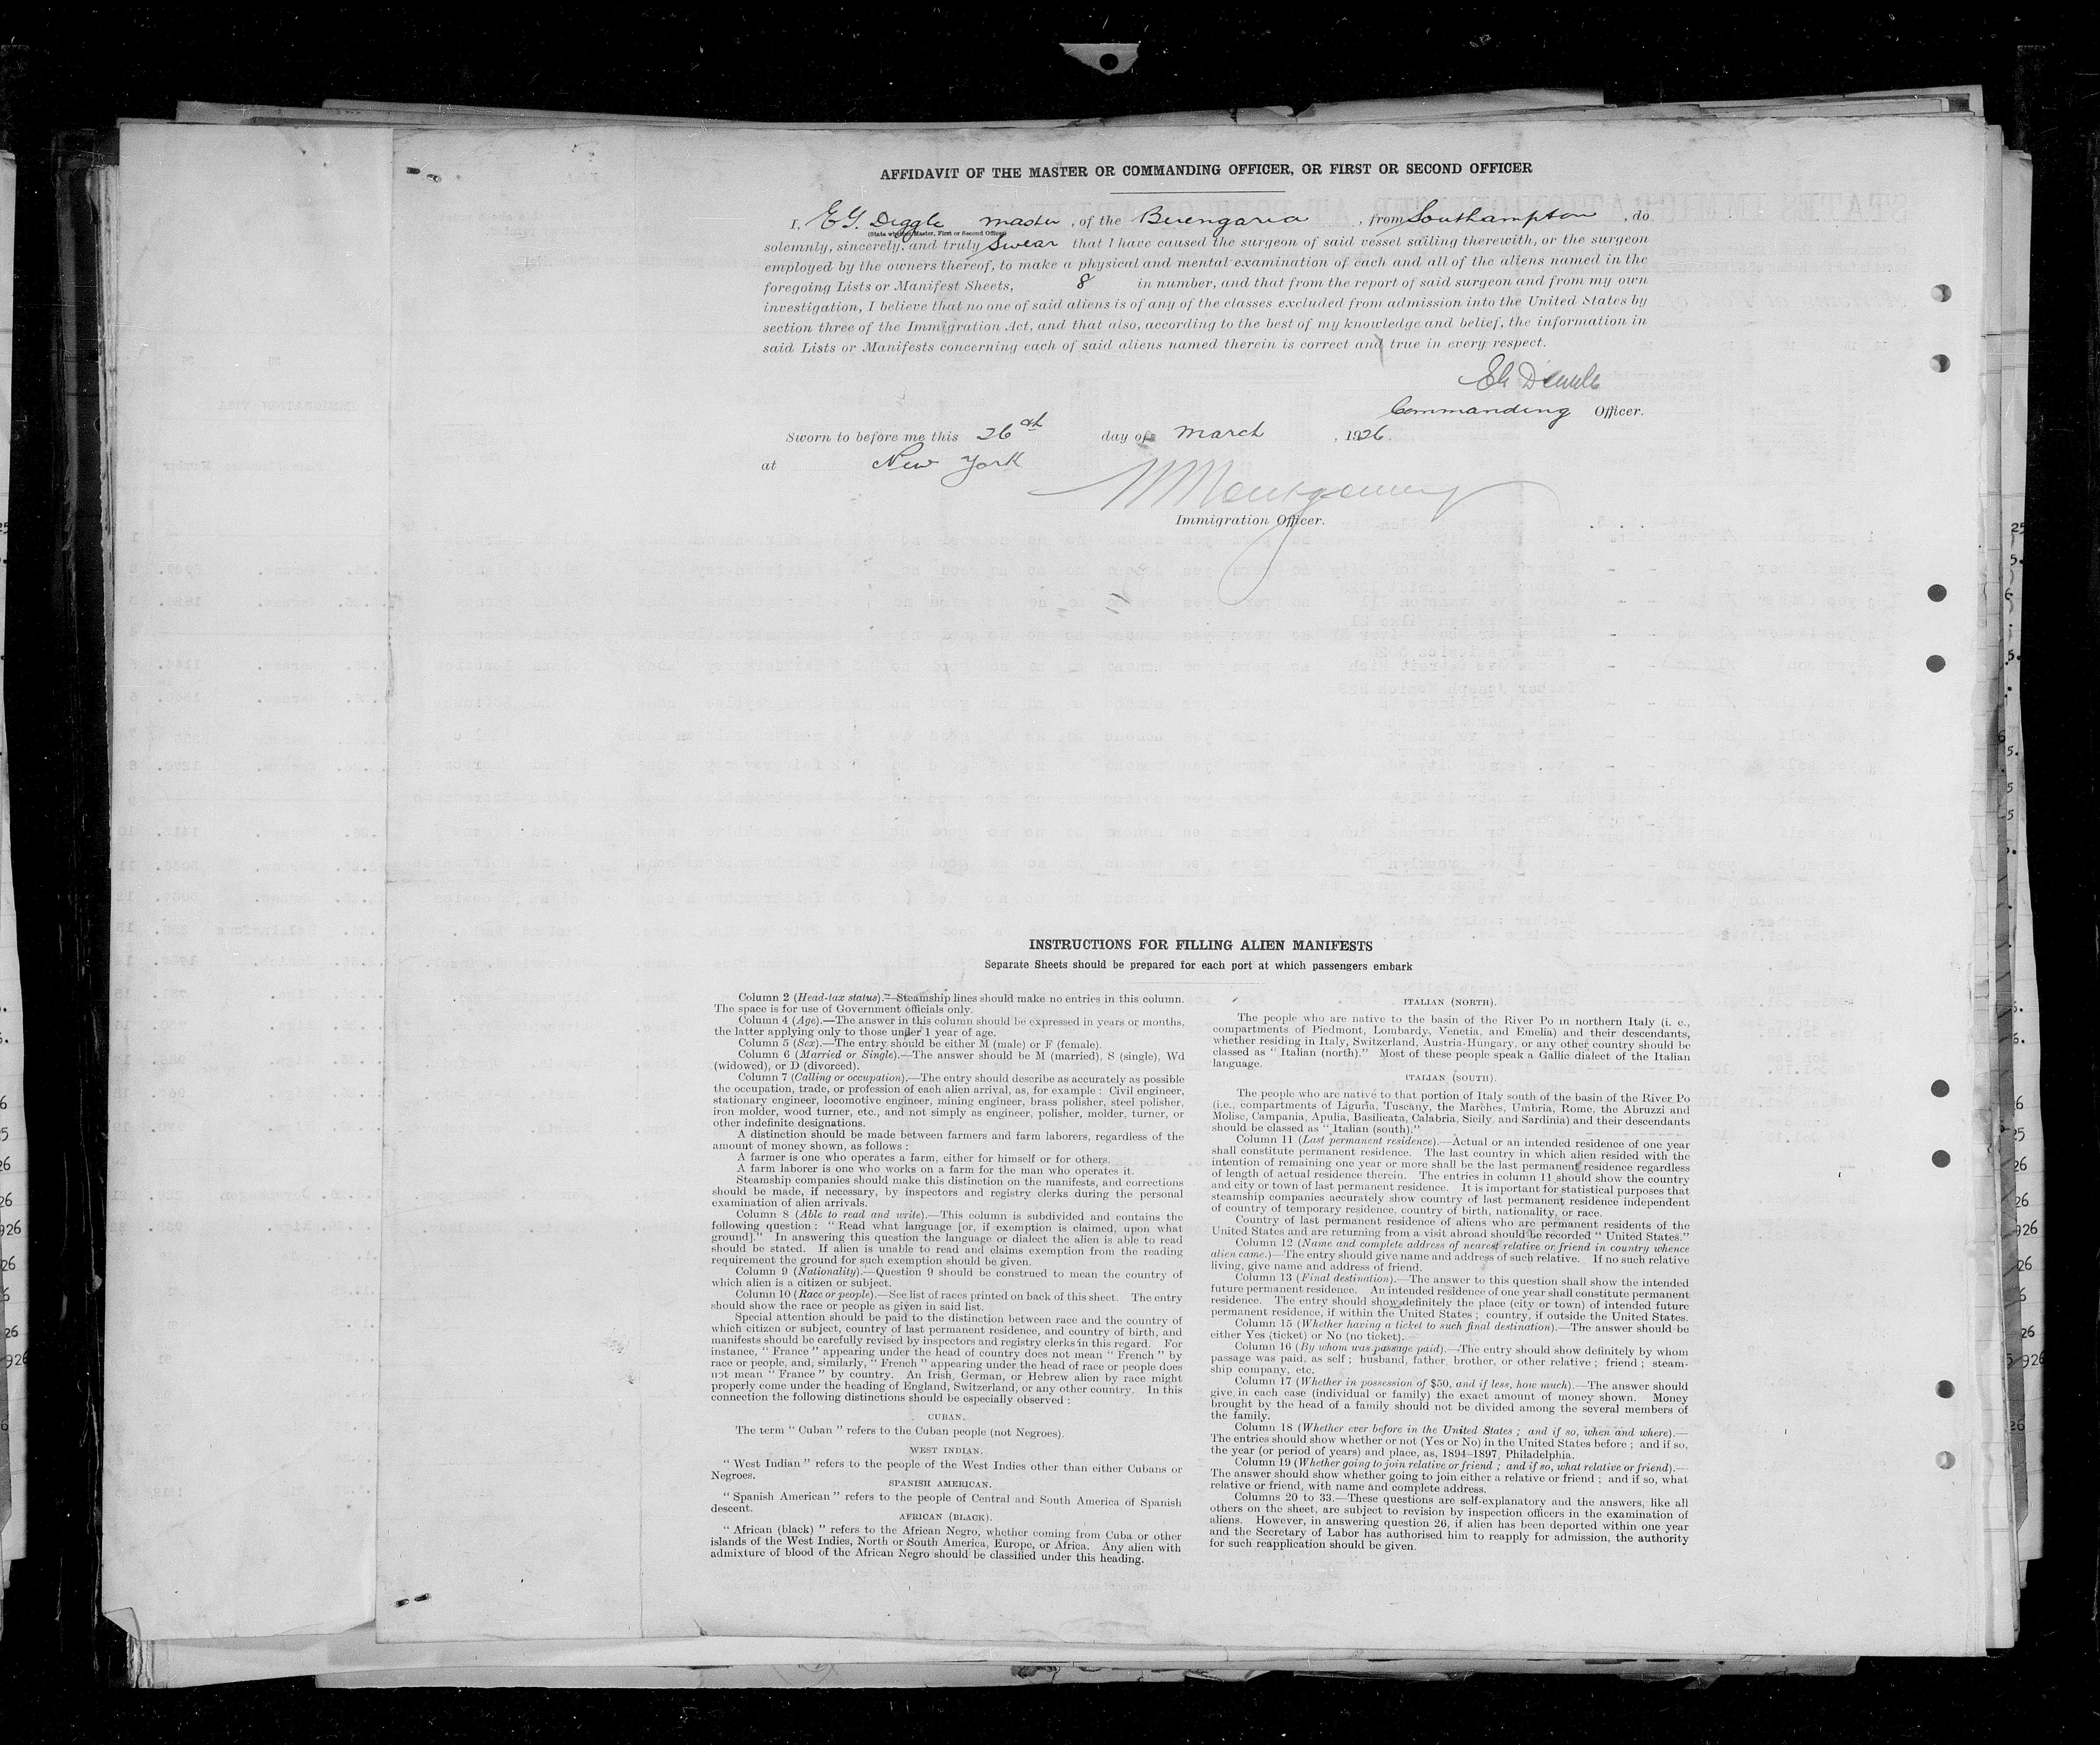 AFFIDAVIT OF THE MASTER OR COMMANDING OFFICER, OR FIRST OR SECOND OFFICER
I, E G. Diggle master , of the Berengaria , from Southampton , do
(State whether Master, First or Second Officer)
solemnly, sincerely, and truly swear that I have caused the surgeon of said vessel sailing therewith, or the surgeon
employed by the owners thereof, to make a physical and mental examination of each and all of the aliens named in the
foregoing Lists or Manifest Sheets, 8 in number, and that from the report of said surgeon and from my own
investigation, I believe that no one of said aliens is of any of the classes excluded from admission into the United States by
section three of the Immigration Act, and that also, according to the best of my knowledge and belief, the information in
said Lists or Manifests concerning each of said aliens named therein is correct and true in every respect.
Commanding Officer.
Sworn to before me this 26th day of March , 1926.
at New York
Montgomery
Immigration Officer.
INSTRUCTIONS FOR FILLING ALIEN MANIFESTS
Separate Sheets should be prepared for each port at which passengers embark
Column 2 (Head-tax status).—Steamship lines should make no entries in this column.
The space is for use of Government officials only.
Column 4 (Age).—The answer in this column should be expressed in years or months,
the latter applying only to those under 1 year of age.
Column 5 (Sex).—The entry should be either M (male) or F (female).
Column 6 (Married or Single).—The answer should be M (married), S (single), Wd
(widowed), or D (divorced).
Column 7 (Calling or occupation).—The entry should describe as accurately as possible
the occupation, trade, or profession of each alien arrival, as, for example : Civil engineer,
stationary engineer, locomotive engineer, mining engineer, brass polisher, steel polisher,
iron molder, wood turner, etc., and not simply as engineer, polisher, molder, turner, or
other indefinite designations.
A distinction should be made between farmers and farm laborers, regardless of the
amount of money shown, as follows :
A farmer is one who operates a farm, either for himself or for others.
A farm laborer is one who works on a farm for the man who operates it.
Steamship companies should make this distinction on the manifests, and corrections
should be made, if necessary, by inspectors and registry clerks during the personal
examination of alien arrivals.
Column 8 (Able to read and write).—This column is subdivided and contains the
following question : “ Read what language [or, if exemption is claimed, upon what
ground].” In answering this question the language or dialect the alien is able to read
should be stated. If alien is unable to read and claims exemption from the reading
requirement the ground for such exemption should be given.
Column 9 (Nationality).—Question 9 should be construed to mean the country of
which alien is a citizen or subject.
Column 10 (Race or people).—See list of races printed on back of this sheet. The entry
should show the race or people as given in said list.
Special attention should be paid to the distinction between race and the country of
which citizen or subject, country of last permanent residence, and country of birth, and
manifests should be carefully revised by inspectors and registry clerks in this regard. For
instance, “ France ” appearing under the head of country does not mean “ French ” by
race or people, and, similarly, “ French ” appearing under the head of race or people does
not mean “ France ” by country. An Irish, German, or Hebrew alien by race might
properly come under the heading of England, Switzerland, or any other country. In this
connection the following distinctions should be especially observed :
CUBAN.
The term “ Cuban ” refers to the Cuban people (not Negroes).
WEST INDIAN.
“ West Indian ” refers to the people of the West Indies other than either Cubans or
Negroes.
SPANISH AMERICAN.
“ Spanish American ” refers to the people of Central and South America of Spanish
descent.
AFRICAN (BLACK).
“ African (black) ” refers to the African Negro, whether coming from Cuba or other
islands of the West Indies, North or South America, Europe, or Africa. Any alien with
admixture of blood of the African Negro should be classified under this heading.
ITALIAN (NORTH).
The people who are native to the basin of the River Po in northern Italy (i. e.,
compartments of Piedmont, Lombardy, Venetia, and Emelia) and their descendants,
whether residing in Italy, Switzerland, Austria-Hungary, or any other country should be
classed as “ Italian (north).” Most of these people speak a Gallic dialect of the Italian
language.
ITALIAN (SOUTH).
The people who are native to that portion of Italy south of the basin of the River Po
(i.e., compartments of Liguria, Tuscany, the Marches, Umbria, Rome, the Abruzzi and
Molise, Campania, Apulia, Basilicata, Calabria, Sicily and Sardinia) and their descendants
should be classed as “ Italian (south).”
Column 11 (Last permanent residence).—Actual or an intended residence of one year
shall constitute permanent residence. The last country in which alien resided with the
intention of remaining one year or more shall be the last permanent residence regardless
of length of actual residence therein. The entries in column 11 should show the country
and city or town of last permanent residence. It is important for statistical purposes that
steamship companies accurately show country of last permanent residence independent
of country of temporary residence, country of birth, nationality, or race.
Country of last permanent residence of aliens who are permanent residents of the
United States and are returning from a visit abroad should be recorded “ United States.”
Column 12 (Name and complete address of nearest relative or friend in country whence
alien came.)—The entry should give name and address of such relative. If no such relative
living, give name and address of friend.
Column 13 (Final destination).—The answer to this question shall show the intended
future permanent residence. An intended residence of one year shall constitute permanent
residence. The entry should show definitely the place (city or town) of intended future
permanent residence, if within the United States ; country, if outside the United States.
Column 15 (Whether having a ticket to such final destination).—The answer should be
either Yes (ticket) or No (no ticket).
Column 16 (By whom was passage paid).—The entry should show definitely by whom
passage was paid, as self ; husband, father, brother, or other relative ; friend ; steam-
ship company, etc.
Column 17 (Whether in possession of $50, and if less, how much).—The answer should
give in each case (individual or family) the exact amount of money shown. Money
brought by the head of a family should not be divided among the several members of
the family.
Column 18 (Whether ever before in the United States ; and if so, when and where).—
The entries should show whether or not (Yes or No) in the United States before ; and if so,
the year (or period of years) and place, as, 1894–1897, Philadelphia.
Column 19 (Whether going to join relative or friend ; and if so, what relative or friend).—
The answer should show whether going to join either a relative or friend ; and if so, what
relative or friend, with name and complete address.
Columns 20 to 33.—These questions are self-explanatory and the answers, like all
others on the sheet, are subject to revision by inspection officers in the examination of
aliens. However, in answering question 26, if alien has been deported within one year
and the Secretary of Labor has authorised him to reapply for admission, the authority
for such reapplication should be given.